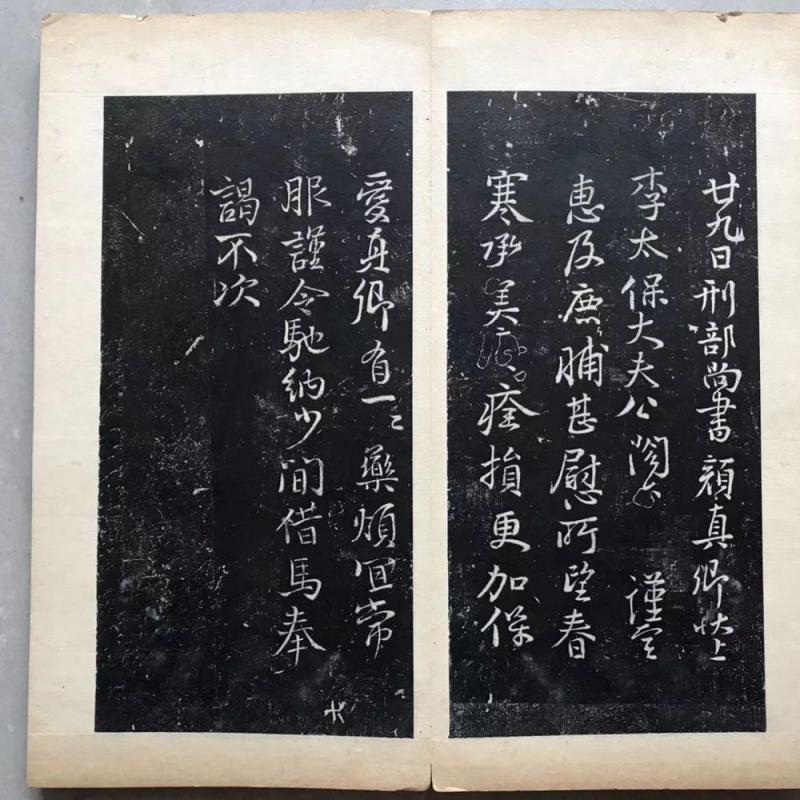 廿九日刑部尚書顏真卿狀上
李太保大夫公閤下 謹空
惠及鹿脯甚慰所望春
寒承美疹痊損更加保
愛真卿有一二藥煩宜常
服謹令馳納少間借馬奉
謁不次